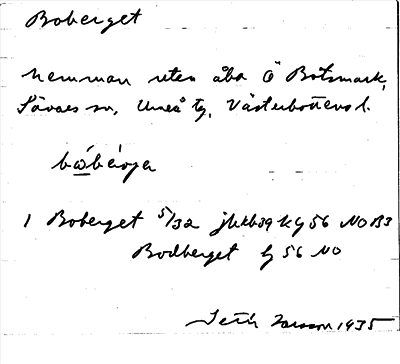 Boberget
hemman utan åbo Ö Botsmark,
Sävars sn, Umeå tg, Västerbottens l.
1 Boberget 5/32 jbkb39 bl 56 NO B3
Bodberget bl 56 NO
Seth Larsson 1935